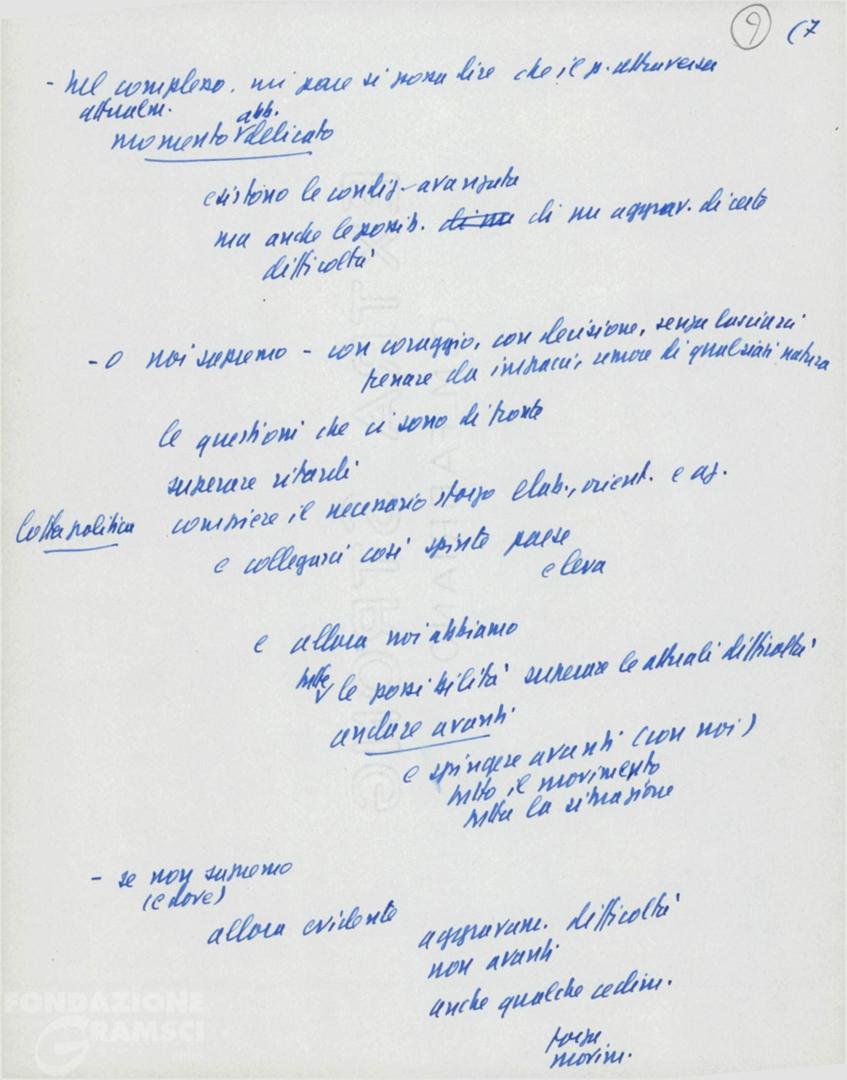 9 (7
- Nel complesso, mi pare si possa dire che il p. attraversa
attualm. abb.
momento delicato
esistono le condiz. avanzata
ma anche le possib. di un aggrav. di certe
difficoltà
- o noi sapremo - con coraggio, con decisione, senza lasciarci
frenare da impacci, remore di qualsiasi natura
le questioni che ci sono di fronte
superare ritardi
lotta politica compiere il necessario sforzo elab., orient. e az.
e collegarci così spinte paese
e leva
e allora noi abbiamo
tutte le possibilità superare le attuali difficoltà
andare avanti
e spingere avanti (con noi)
tutto il movimento
tutta la situazione
- se non sapremo
(e dove)
allora evidente
aggravam. difficoltà
non avanti
anche qualche cedim.
forza
movim.
FONDAZIONE
GRAMSCI